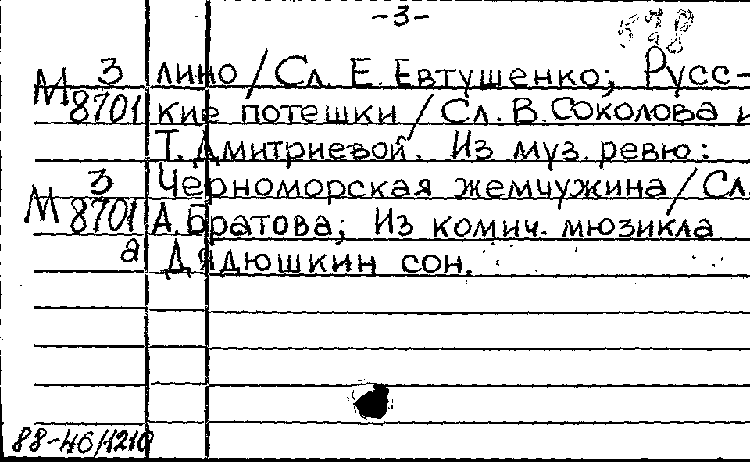 -3-
598
лино / Сл. Е. Евтушенко; Русс-
кие потешки / Сл. В. Соколова и
Т. Дмитриевой. Из муз. ревю:
Черноморская жемчужина / Сл.
А. Братова; Из комич. мюзикла
Дядюшкин сон.
М 3
8701
М 3
8701
а
88-46/1210